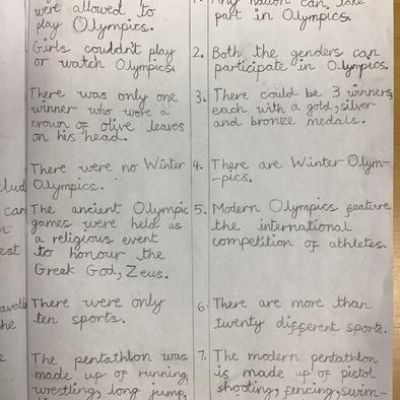 were allowed to
play Olympics.
Girls couldn't play
or watch Olympics.
There was only one
winner who wore a
crown of olive leaves
on his head.
There were no Winter
Olympics.
The ancient Olympic
games were held as
a religious event
to honour the
Greek God, Zeus.
There were only
ten sports.
The pentathlon was
made up of running,
wrestling, long jump,
1. Any nation can take
part in Olympics.
2. Both the genders can
participate in Olympics.
3. There could be 3 winners,
each with a gold, silver
and bronze medals.
4. There are Winter Olym-
-pics.
5. Modern Olympics feature
the international
competition of athletes.
6. There are more than
twenty different sports.
7. The modern pentathlon
is made up of pistol
shooting, fencing, swim-